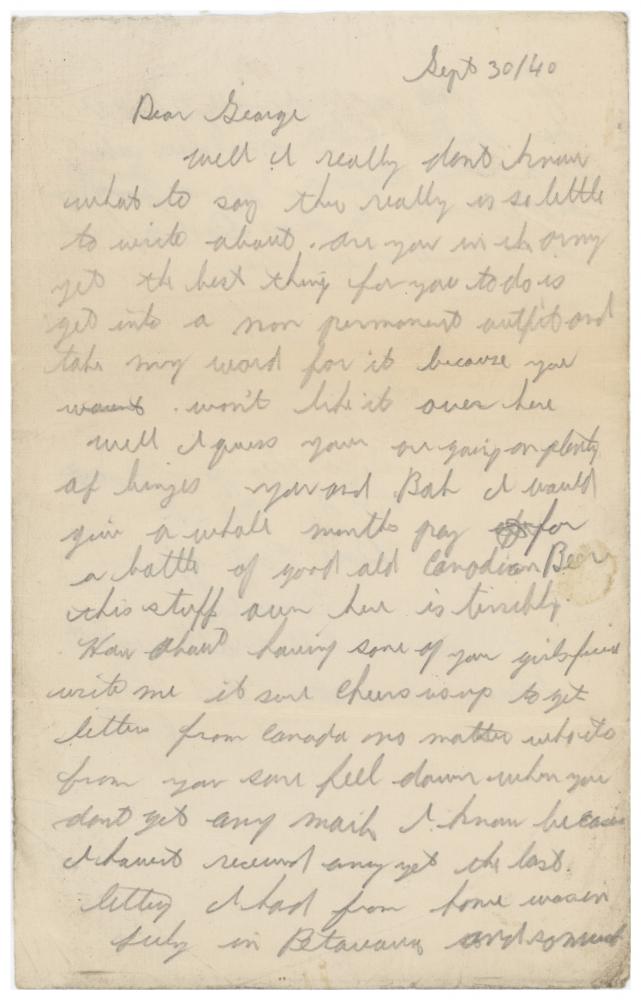 Sept 30/40
Dear George
well I really dont know
what to say ther really is so little
to write about. are you in the army
yet the best thing for you to do is
get into a non permanent outfit and
take my word for it because you
wount won't like it over here
well I guess your are going on plenty
of binges you and Bob I would
give a whole months pay for
a bottle of good old Canadian Beer
this stuff over here is terrible.
How about having some of your girlsfriend
write me it sure cheers us up to get
letters from Canada no matter who its
from you sure feel down when you
dont get any mail I know because
I havent received any yet the last
letter I had from home was in
July in Petawawa and